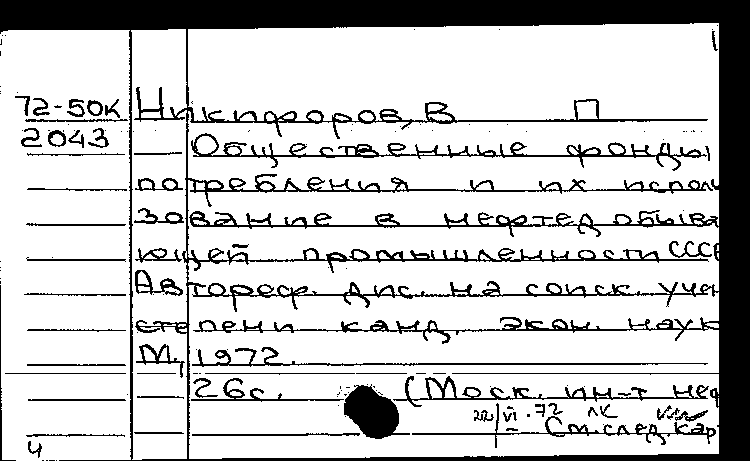 72-50к Никифоров, В П
2043 Общественные фонды
потребления и их исполь
зование в нефтедобыва
ющей промышленности СССР
Автореф. дис. на соиск. учен
степени канд. экон. наук
М., 1972.
26с. (Моск. ин-т неф
22/VI.72 ЛК
См. след. кар
4